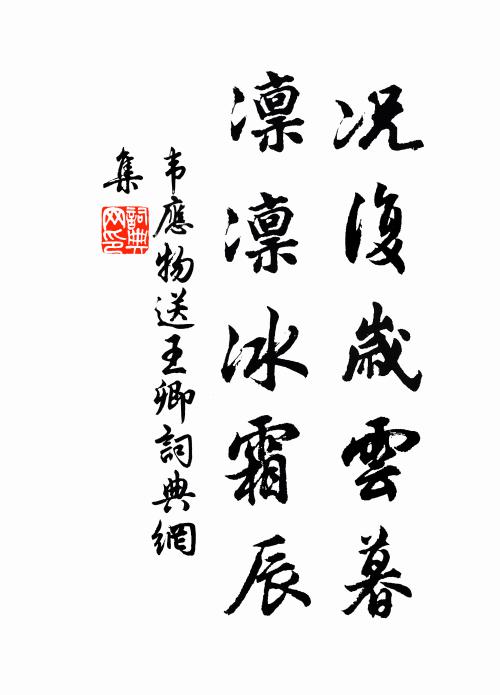 况復歲雲暮
凛凛冰霜辰
韦應物送王卿詞典網
集
詞典
网印